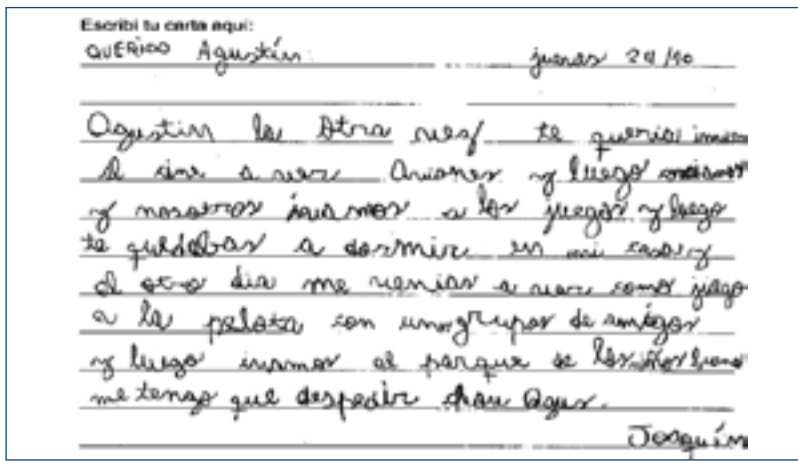 Escribí tu carta aquí:
QUERIDO Agustín: jueves 24/10
Agustin la Otra ves te queria
al cine a ver Aviones y luego
y nosotros ivamos a los juegos y luego
te quedabas a dormir en mi casa y
el otro dia me venias a ver como juego
a la pelota con unos grupos de amigos
y luego ivamos al parque de los niños bueno
me tengo que despedir chau Agus.
Joaquín